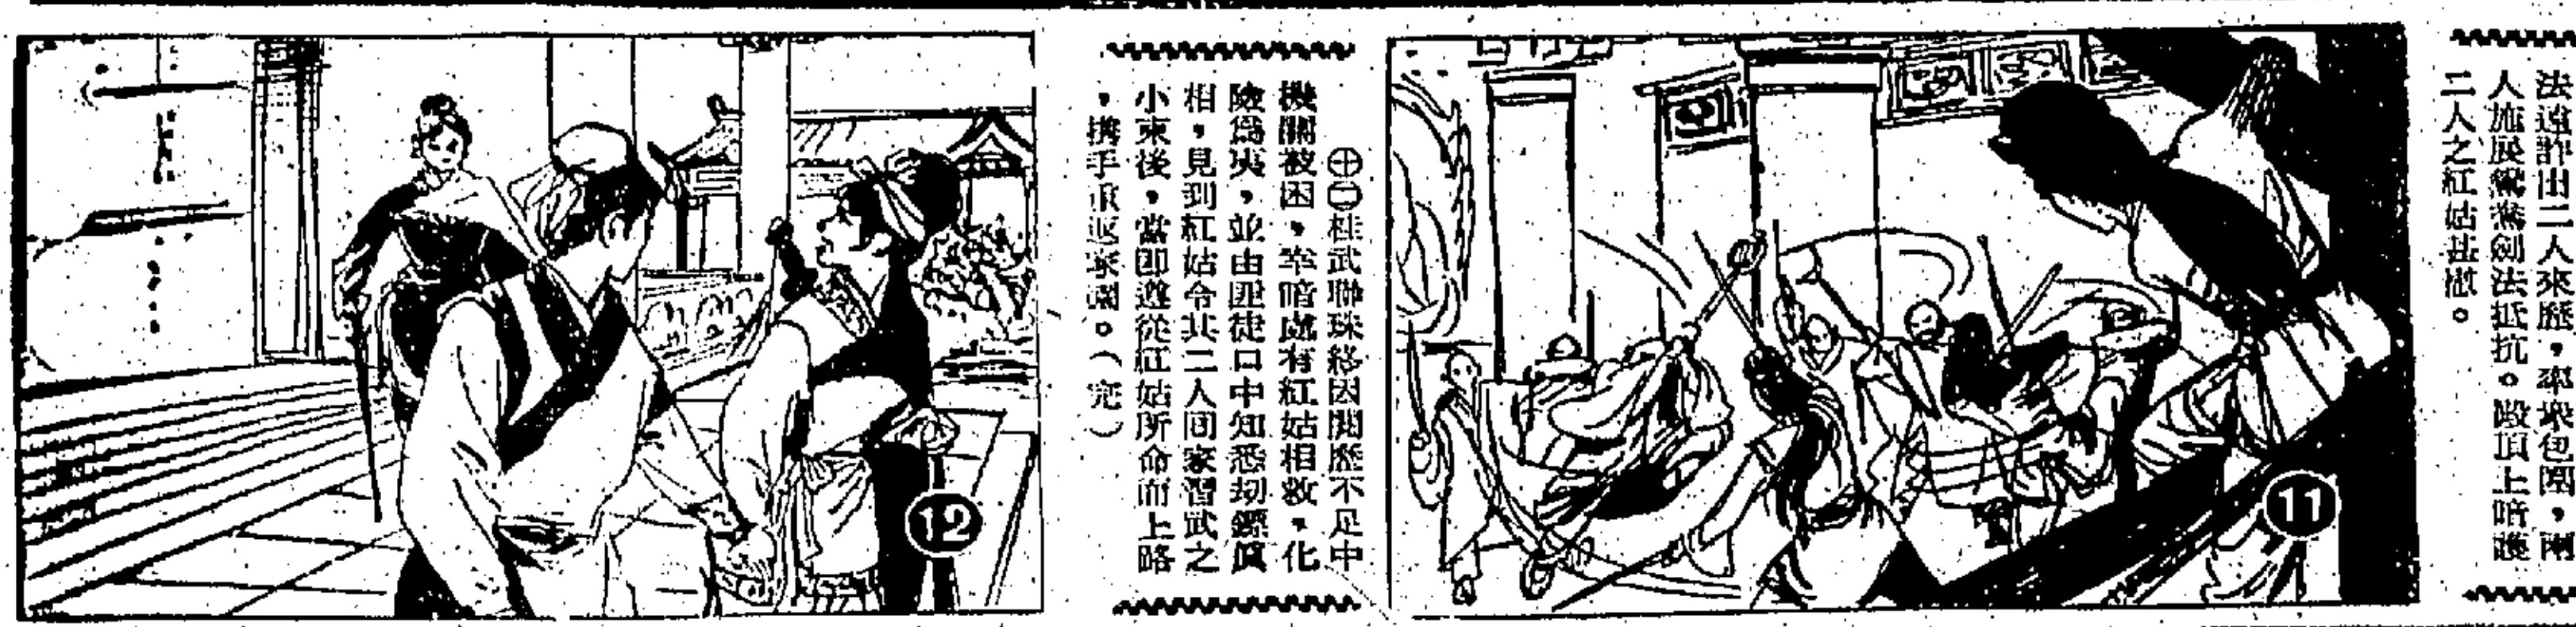 法遠詐出二人來歷，率衆包圍，兩
人施展鴛鴦劍法抵抗。殿頂上暗護
二人之紅姑甚慰。
11
㊉㊁桂武聯珠終因閱歷不足中
機關被困，幸暗處有紅姑相救，化
險爲夷，並由匪徒口中知悉刧鏢眞
相，見到紅姑令其二人回家習武之
小柬後，當即遵從紅姑所命而上路
，携手重返家園。（完）
12